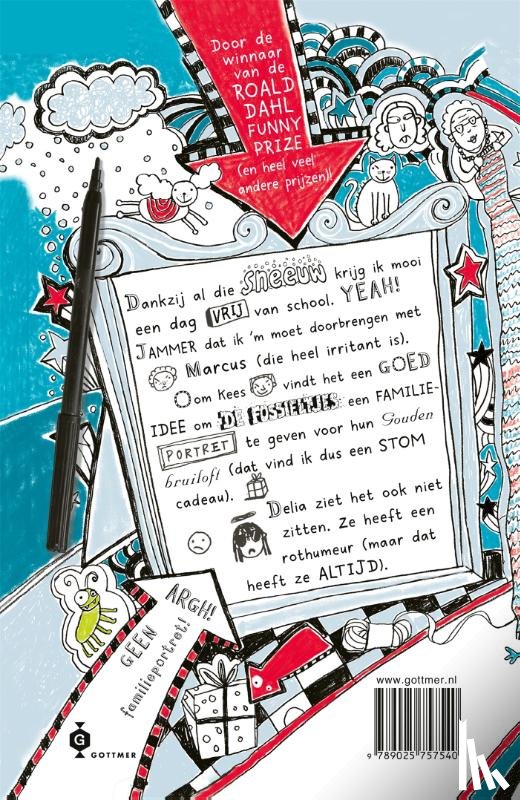 Door de
winnaar
van de
ROALD
DAHL
FUNNY
PRIZE
(en heel veel
andere prijzen)!
Dankzij al die sneeuw krijg ik mooi
een dag VRIJ van school. YEAH!
JAMMER dat ik 'm moet doorbrengen met
Marcus (die heel irritant is).
Oom Kees vindt het een GOED
IDEE om DE FOSSIELTJES een FAMILIE-
PORTRET te geven voor hun Gouden
bruiloft (dat vind ik dus een STOM
cadeau).
Delia ziet het ook niet
zitten. Ze heeft een
rothumeur (maar dat
heeft ze ALTIJD).
ARGH!
GEEN
familieportret!
www.gottmer.nl
G
GOTTMER
9 789025 757540